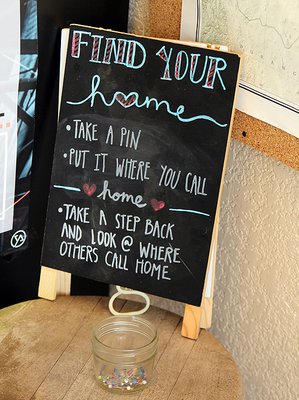 FIND YOUR
home
• TAKE A PIN
• PUT IT WHERE YOU CALL
home
• TAKE A STEP BACK
AND LOOK @ WHERE
OTHERS CALL HOME.